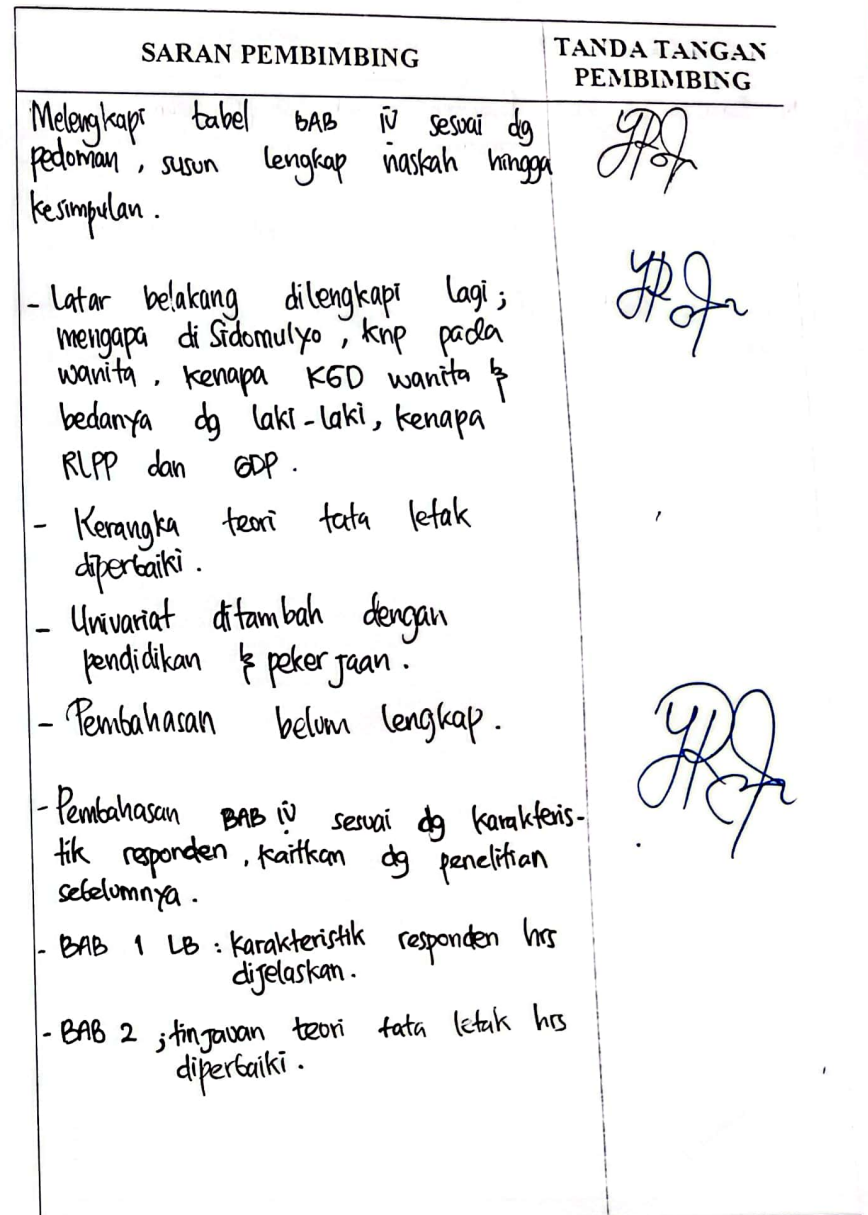 SARAN PEMBIMBING
TANDA TANGAN
PEMBIMBING
Melengkapi tabel BAB iv sesuai dg
pedoman, susun lengkap naskah hingga
kesimpulan.
- Latar belakang dilengkapi lagi;
mengapa di Sidomulyo, knp pada
wanita, kenapa KGD wanita &
bedanya dg laki-laki, kenapa
RLPP dan GDP.
- Kerangka teori tata letak
diperbaiki.
- Univariat ditambah dengan
pendidikan & pekerjaan.
- Pembahasan belum lengkap.
- Pembahasan BAB iv sesuai dg karakteris-
tik responden, kaitkan dg penelitian
sebelumnya.
- BAB 1 LB : karakteristik responden hrs
dijelaskan.
- BAB 2 ; tinjauan teori tata letak hrs
diperbaiki.